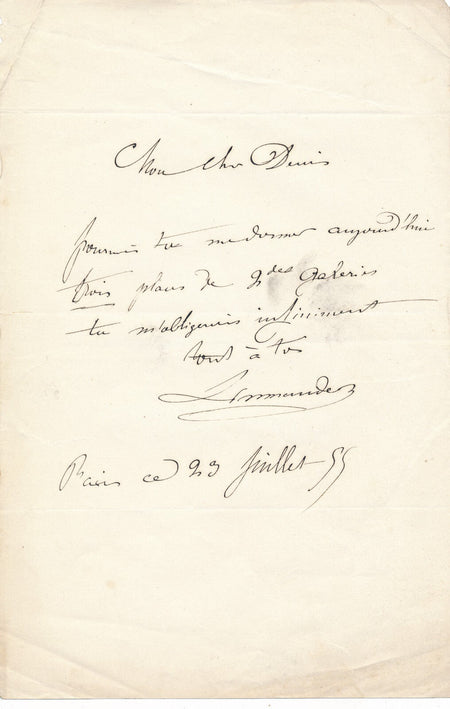 Mon cher Denis
pourrais tu me donner aujourd'hui
trois places de 2des Galeries
tu m'obligerais infiniment
tout à toi
Paris ce 23 Juillet 55